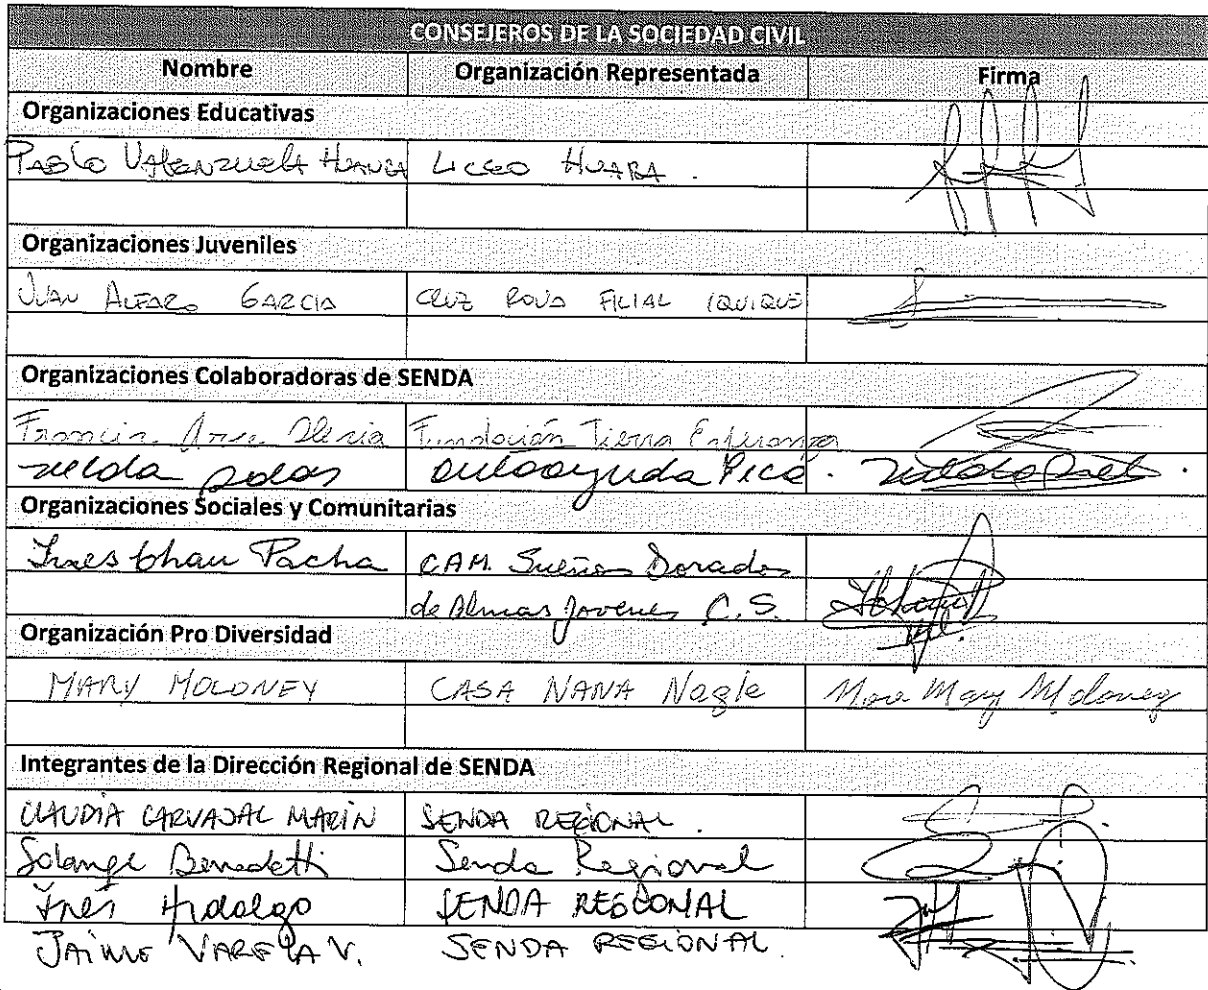 CONSEJEROS DE LA SOCIEDAD CIVIL
Nombre Organización Representada Firma
Organizaciones Educativas
Pablo Valenzuela Huanca Liceo Huara.
Organizaciones Juveniles
Juan Alfaro Garcia Cruz Roja Filial Iquique
Organizaciones Colaboradoras de SENDA
Arce Fundación Tierra Esperanza
autoayuda Pica.
Organizaciones Sociales y Comunitarias
Ines Chau Pacha CAM. Sueños Dorados
de Almas Jovenes C.S.
Organización Pro Diversidad
MARY MOLONEY CASA NANA Nagle Mary Moloney
Integrantes de la Dirección Regional de SENDA
CLAUDIA CARVAJAL MARÍN SENDA REGIONAL.
Solange Benedetti Senda Regional
Inés Hidalgo SENDA REGIONAL
JAIME VARELA V. SENDA REGIONAL.